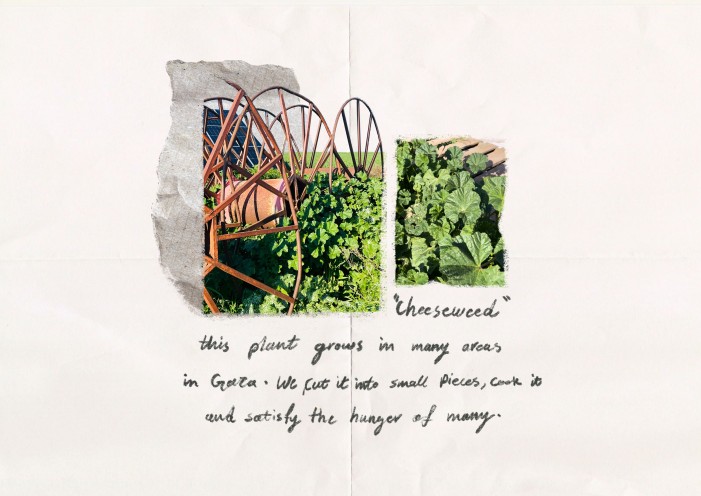 "Cheeseweed"
this plant grows in many areas
in Gaza. We cut it into small pieces, cook it
and satisfy the hunger of many.